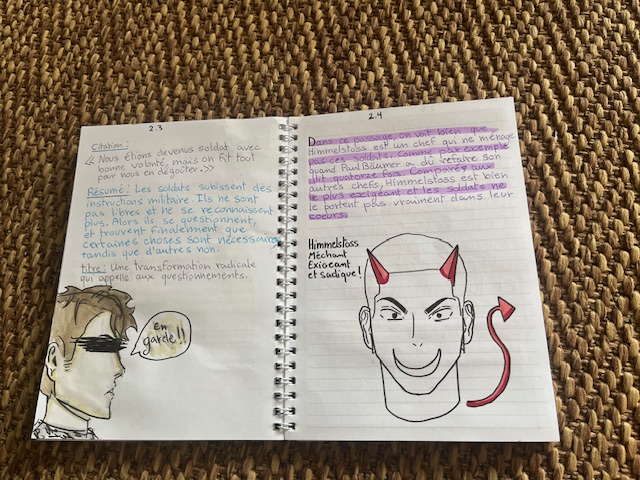 2.3
Citation :
« Nous étions devenus soldat avec
bonne volonté, mais on fit tout
pour nous en dégoûter. »
Résumé : Les soldats subissent des
instructions militaire. Ils ne sont
pas libres et ne se reconnaissent
plus. Alors ils se questionnent
et trouvent finalement que
certaines choses sont nécessaires
tandis que d'autres non.
titre : Une transformation radicale
qui appelle aux questionnements.
en
garde!!
2.4
Dans ce passage, on voit bien que
Himmelstoss est un chef qui ne ménage
pas ces soldats. Comme par exemple
quand Paul Bäumer a dû refaire son
lit quatorze fois. Comparé aux
autres chefs, Himmelstoss est bien
le plus exigeant et les soldats ne
le portent pas vraiment dans leur
coeurs.
Himmelstoss
Méchant
Exigeant
et sadique!